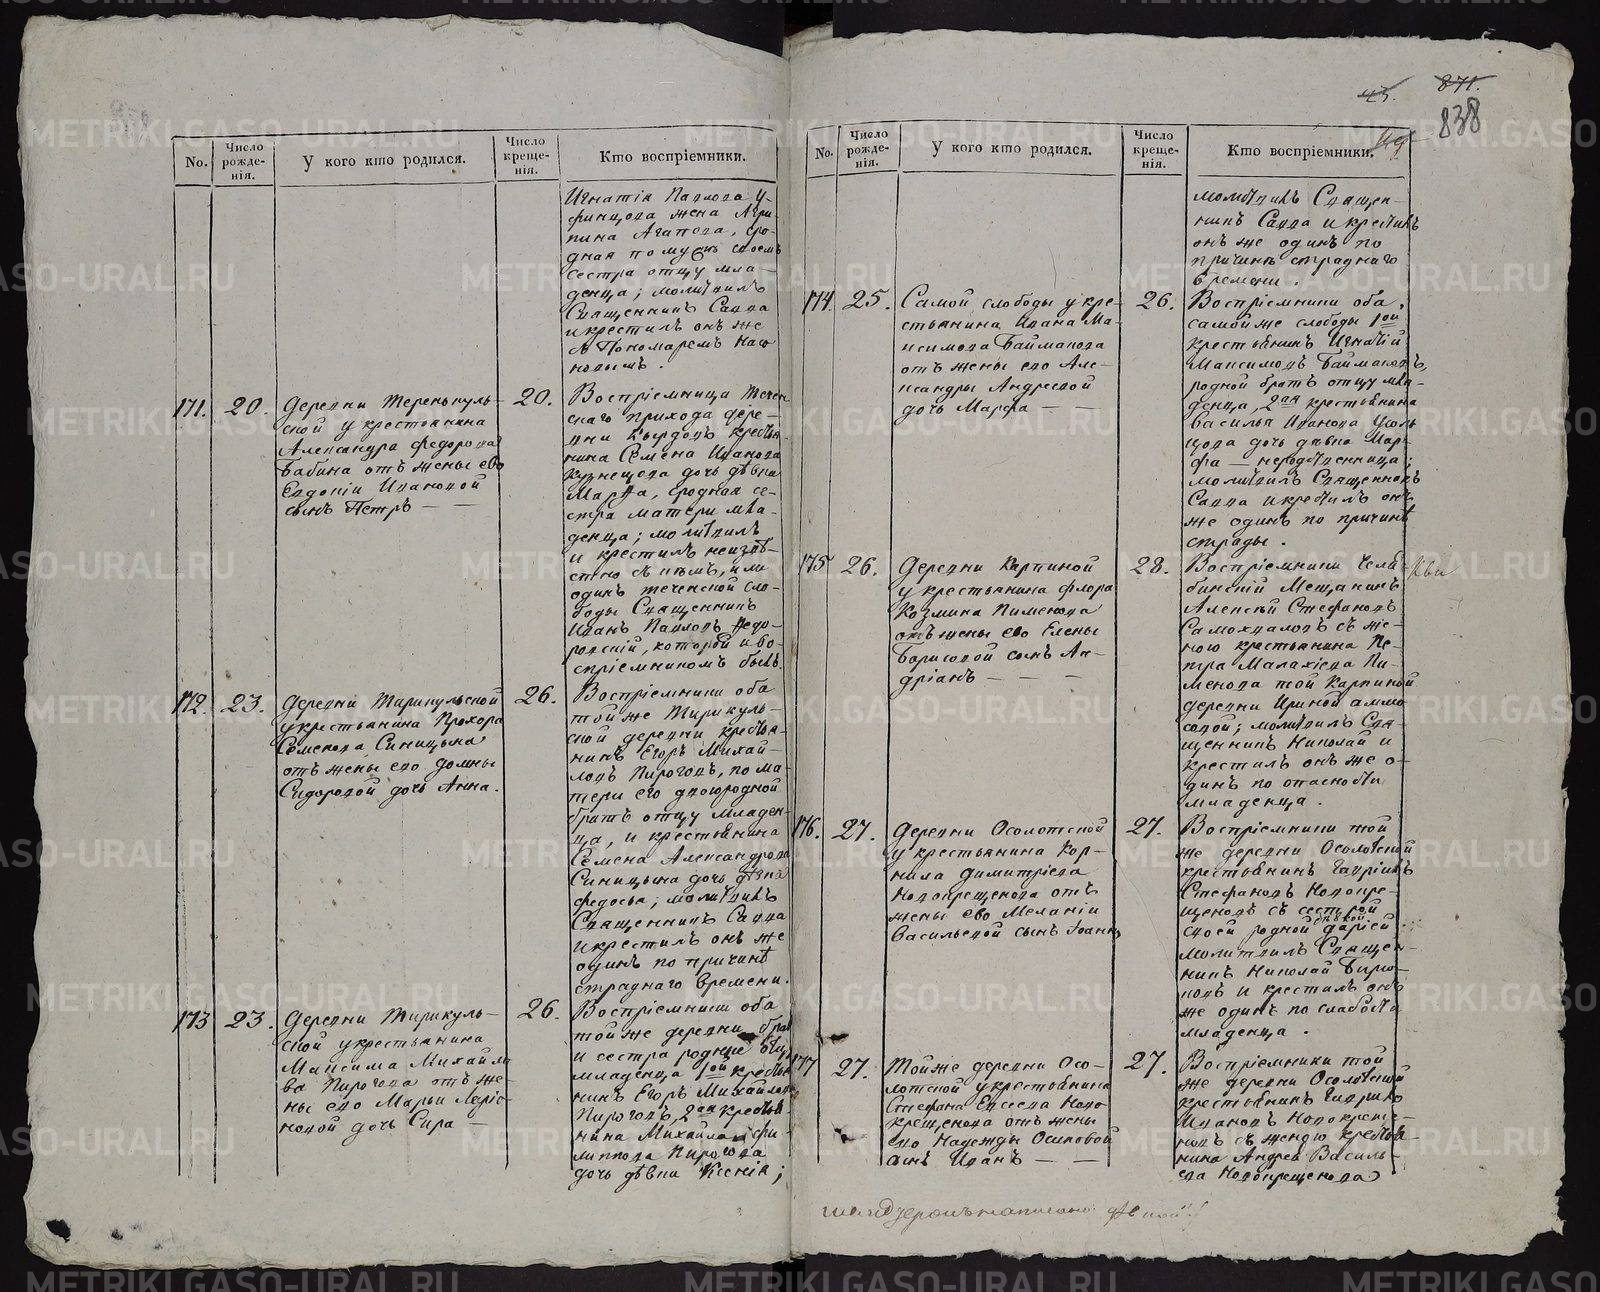 No.
Число рожде-нія.
У кого кто родился.
Число креще-нія.
Кто воспріемники.
Игнатія Павлова У-
финцова жена Агри-
пина Агапова, сро-
дная по мужѣ своемъ
сестра отцу мла-
денца; молитвилъ
Священникъ Савва
и крестилъ онъ же
съ Пономаремъ
171. 20. Деревни Теренькуль-
ской у крестьянина
Александра Федорова
Бабина отъ жены ево
Евдокіи Ивановой
сынъ Петръ — —
20. Воспріемница Течен-
скаго прихода дере-
вни кресть-
нина Семена Иванова
Кузнецова дочь дѣвка
Марѳа, сродная се-
стра матери мла-
денца; молитвилъ
и крестилъ неизвѣ-
стно съ кѣмъ, или
одинъ теченской сло-
боды Священникъ
Иванъ Павловъ
который и во-
спріемникомъ былъ.
172. 23. Деревни Тирикульской
у крестьянина Прохора
Семенова Синицына
отъ жены ево Домны
Сидоровой дочь Анна.
26. Воспріемники оба
той же Тирикуль-
ской деревни крестья-
нинъ Егоръ Михай-
ловъ Пироговъ, по ма-
тери его двоюродной
братъ отцу младен-
ца, и крестьянина
Семена Александрова
Синицына дочь дѣвка
Федосья; молитвилъ
Священникъ Савва
и крестилъ онъ же
одинъ по причинѣ
страднаго времени.
173 23. Деревни Тирикуль-
ской у крестьянина
Максима Михайло
ва Пирогова отъ же-
ны ево Марьи
дочь Кира —
26. Воспріемники оба
той же деревни брат
и сестра родные отцу
младенца 1ой крестья
нинъ Егоръ Михайловъ
Пироговъ, 2ая крестья
нина Михайла Фи-
липпова Пирогова
дочь дѣвка Ксенія;
45. 871.
838
No.
Число рожде-нія.
У кого кто родился.
Число креще-нія.
Кто воспріемники.
молитвилъ Священ-
никъ Савва и крестилъ
онъ же одинъ по
причинѣ страднаго
времени.
174. 25. Самой слободы у кре-
стьянина Ивана Ма-
ксимова Баймакова
отъ жены ево Але-
ксандры Андреевой
дочь Марфа — —
26. Воспріемники оба,
самой же слободы 1ой
крестьянинъ Игнатій
Максимовъ Баймаковъ,
родной братъ отцу мла-
денца, 2ая крестьянина
Василья Иванова Усоль
цова дочь дѣвка Мар-
фа — неродственница;
молитвилъ Священникъ
Савва и крестилъ онъ
же одинъ по причинѣ
страды.
175 26. Деревни Карпиной
у крестьянина Флора
Козмина Пименова
отъ жены ево Елены
Борисовой сынъ Ан-
дріанъ — — —
28. Воспріемники Челя-
бинскій Мещанинъ
Алексѣй Стефановъ
Самохваловъ съ же-
ною крестьянина Пе-
тра Малахіева Пи-
менова той Карпиной
деревни Ириной Аммо-
совой; молитвилъ Свя-
щенникъ Николай и
крестилъ онъ же о-
динъ по опасности
младенца.
176. 27. Деревни Осолотской
у крестьянина Кор-
нила Димитріева
Новокрещенова отъ
жены ево Меланіи
Васильевой сынъ Іоаннъ
27. Воспріемники той
же деревни Осолотской
крестьянинъ Гавріилъ
Стефановъ Новокре-
щеновъ съ сестрой
своей родной дѣвкой Дарьей
молитвилъ Священ-
никъ Николай Бирю-
ковъ и крестилъ онъ
же одинъ по слабости
младенца.
177 27. Той же деревни Осо-
лотской у крестьянина
Стефана Евсеева Ново
крещенова отъ жены
ево Надежды Осиповой
сынъ Иванъ — —
27. Воспріемники той
же деревни Осолотской
крестьянинъ Гаврило
Ивановъ Новокреще-
новъ съ женою крестья-
нина Андрея Василь-
ева Новокрещенова